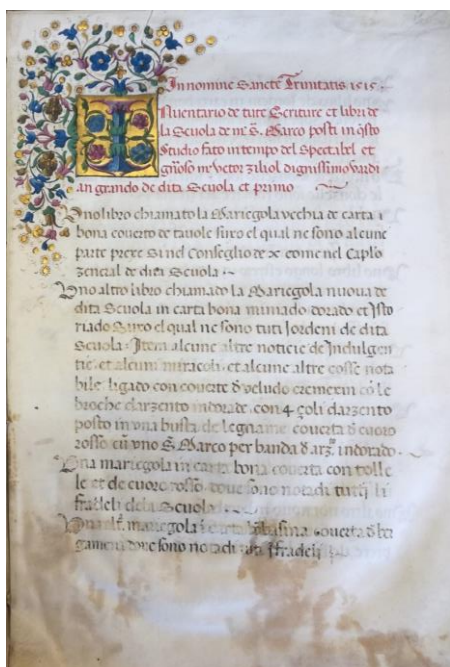 In nomine Sancte Trinitatis 1515.
Inventario de tute Scriture et libri de
la Scuola de mᵉ S. Marco posti in q̄sto
Studio fato in tempo del Spectabel et
gn̄oso mᵉ Vetor ziliol dignissimo Vardi
an grando de dita Scuola et primo
Uno libro chiamato la Mariegola vechia de carta i
bona coverto de tavole suxo el qual ne sono alcune
parte prexe si nel Conseglio de x come nel Cap̄lo
zeneral de dita Scuola
Uno altro libro chiamado la Mariegola nuova de
dita Scuola in carta bona miniado dorado et Isto
riado Suxo el qual ne sono tuti Iordeni de dita
Scuola. Item alcune altre noticie de Indulgen
tie, et alcuni miracoli, et alcune altre cosse nota
bile, ligado con coverte đ veludo cremexin cō le
broche darzento indorade, con 4 çoli darzento
posto in una busta de legname coverta đ cuoro
rosso cū uno S. Marco per banda đ arz.ᵗᵒ indorado
Una mariegola in carta bona coverta con tolle
le et de cuoro rosso, dove sono notadi tuti li
fradeli dela Scuola
Una alt.ᵃ mariegola ī carta bābasina coverta đ ber
gamena dove sono notadi fradeli